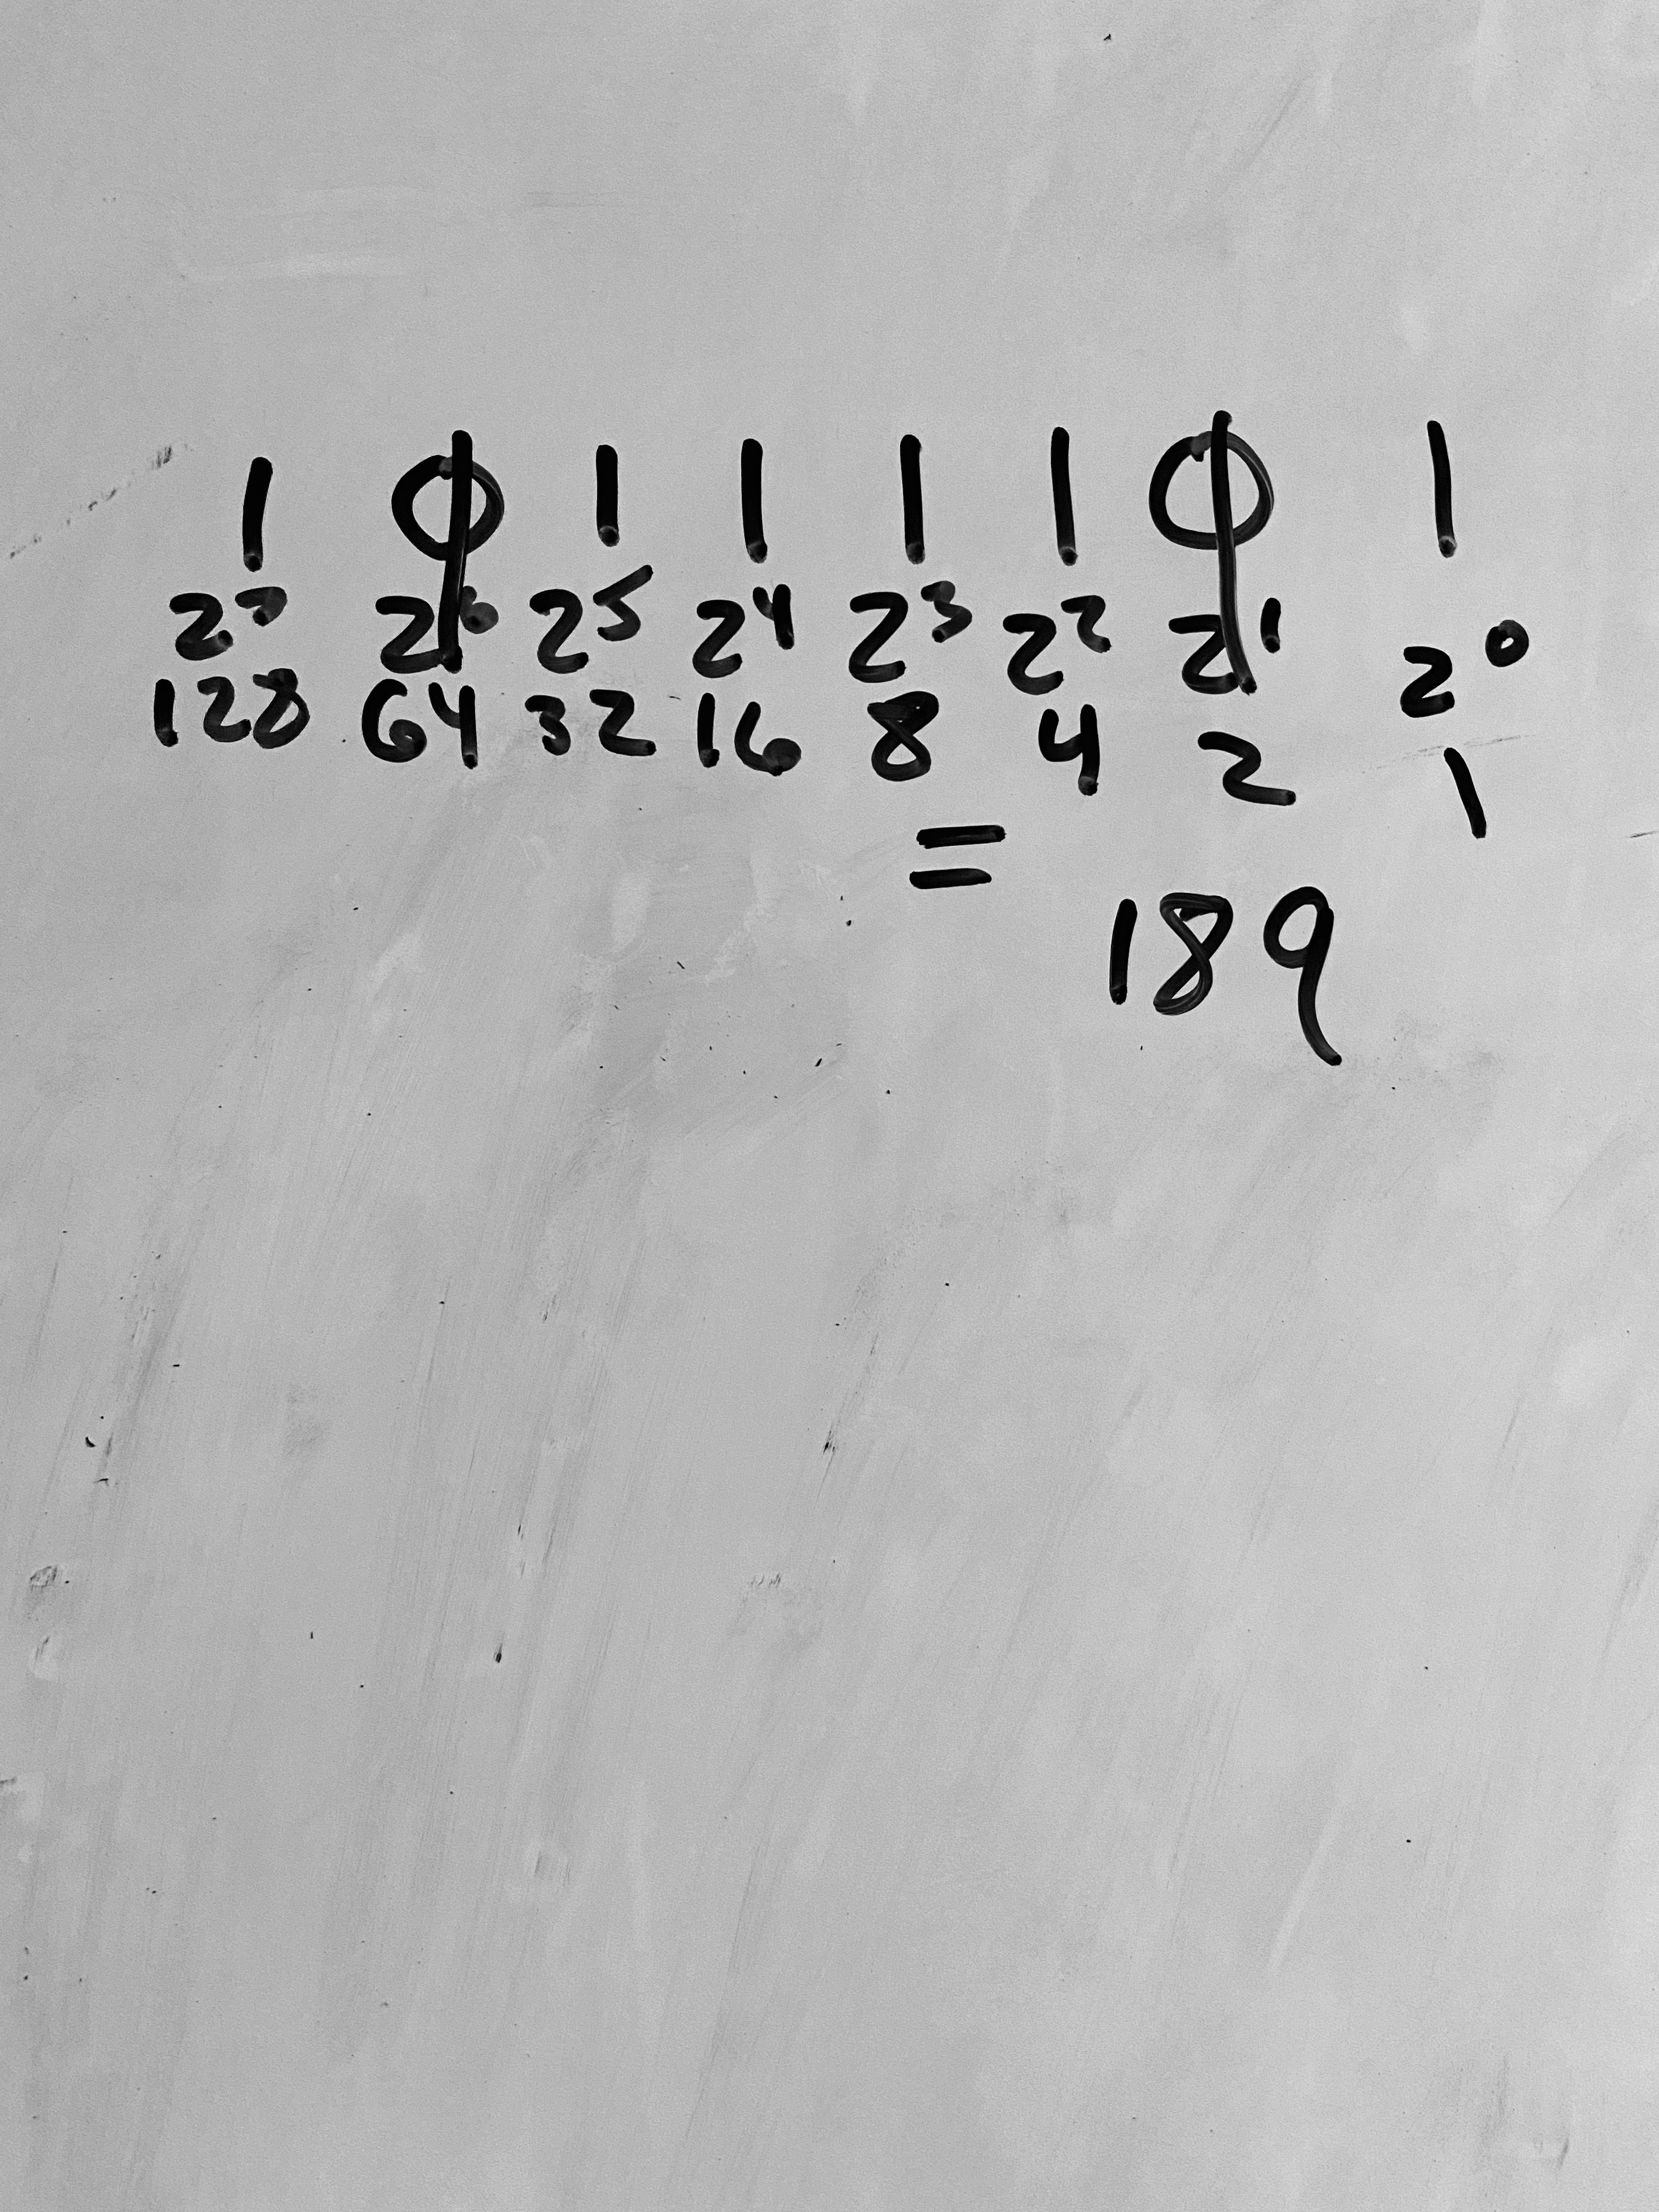 1 0 1 1 1 1 0 1
2⁷ 2⁶ 2⁵ 2⁴ 2³ 2² 2¹ 2⁰
128 64 32 16 8 4 2 1
=
189